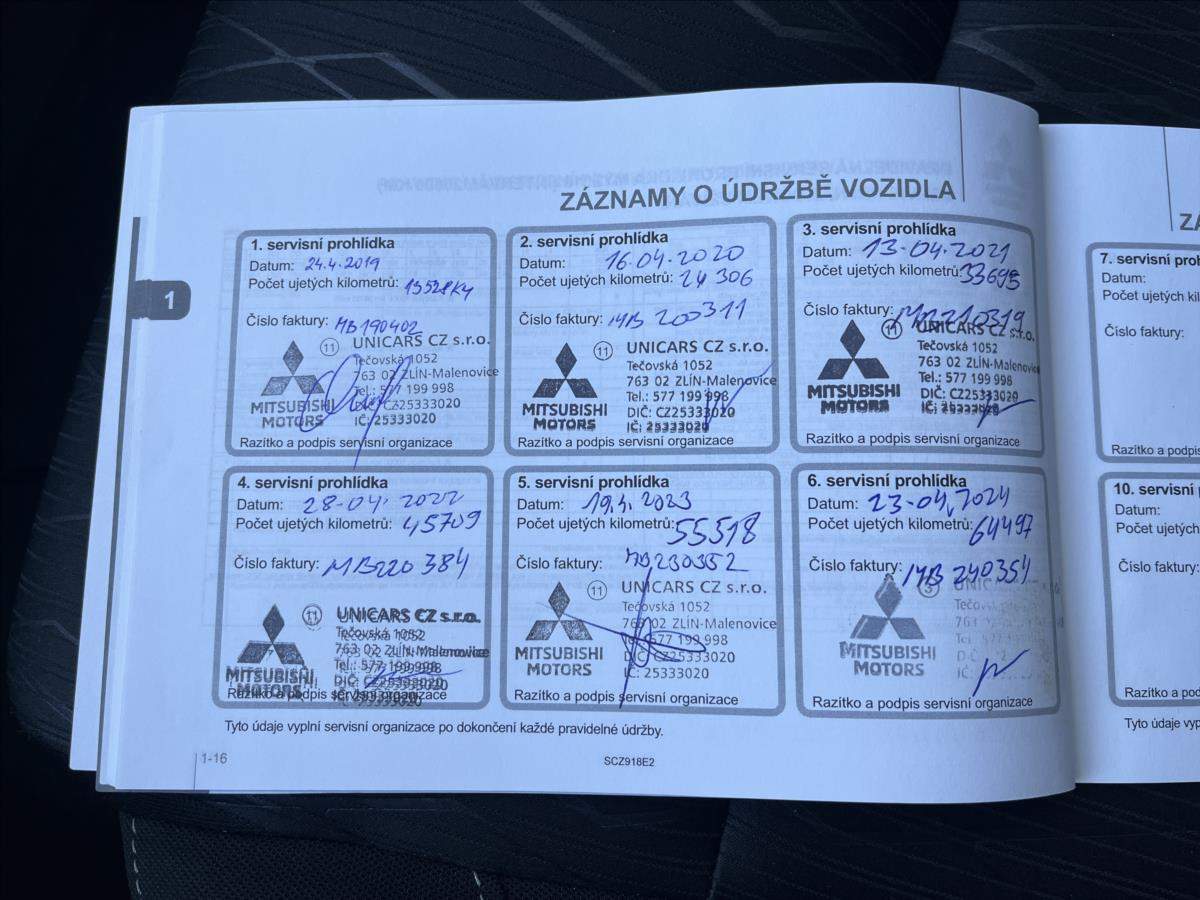 ZÁZNAMY O ÚDRŽBĚ VOZIDLA
1
1. servisní prohlídka
Datum: 24.4.2019
Počet ujetých kilometrů: 13528 KM
Číslo faktury: MB190402
11 UNICARS CZ s.r.o.
Tečovská 1052
763 02 ZLÍN-Malenovice
Tel.: 577 199 998
DIČ: CZ25333020
IČ: 25333020
MITSUBISHI
MOTORS
Razítko a podpis servisní organizace
2. servisní prohlídka
Datum: 16.04.2020
Počet ujetých kilometrů: 24 306
Číslo faktury: MB 200311
11 UNICARS CZ s.r.o.
Tečovská 1052
763 02 ZLÍN-Malenovice
Tel.: 577 199 998
DIČ: CZ25333020
IČ: 25333020
MITSUBISHI
MOTORS
Razítko a podpis servisní organizace
3. servisní prohlídka
Datum: 13-04.2021
Počet ujetých kilometrů: 33695
Číslo faktury: MB210319
11 UNICARS CZ s.r.o.
Tečovská 1052
763 02 ZLÍN-Malenovice
Tel.: 577 199 998
DIČ: CZ25333020
IČ: 25333020
MITSUBISHI
MOTORS
Razítko a podpis servisní organizace
4. servisní prohlídka
Datum: 28-04. 2022
Počet ujetých kilometrů: 45709
Číslo faktury: MB220 384
11 UNICARS CZ s.r.o.
Tečovská 1052
763 02 ZLÍN-Malenovice
Tel.: 577 199 998
DIČ: CZ25333020
MITSUBISHI
MOTORS
Razítko a podpis servisní organizace
5. servisní prohlídka
Datum: 19.4.2023
Počet ujetých kilometrů: 55518
Číslo faktury: MB230352
11 UNICARS CZ s.r.o.
Tečovská 1052
763 02 ZLÍN-Malenovice
Tel.: 577 199 998
DIČ: CZ25333020
IČ: 25333020
MITSUBISHI
MOTORS
Razítko a podpis servisní organizace
6. servisní prohlídka
Datum: 23-04.2024
Počet ujetých kilometrů: 64497
Číslo faktury: MB 240354
3 UNIC
MITSUBISHI
MOTORS
Razítko a podpis servisní organizace
Tyto údaje vyplní servisní organizace po dokončení každé pravidelné údržby.
1-16
SCZ918E2
ZÁ
7. servisní proh
Datum:
Počet ujetých kil
Číslo faktury:
Razítko a podpis
10. servisní
Datum:
Počet ujetých
Číslo faktury:
Razítko a podp
Tyto údaje vyp